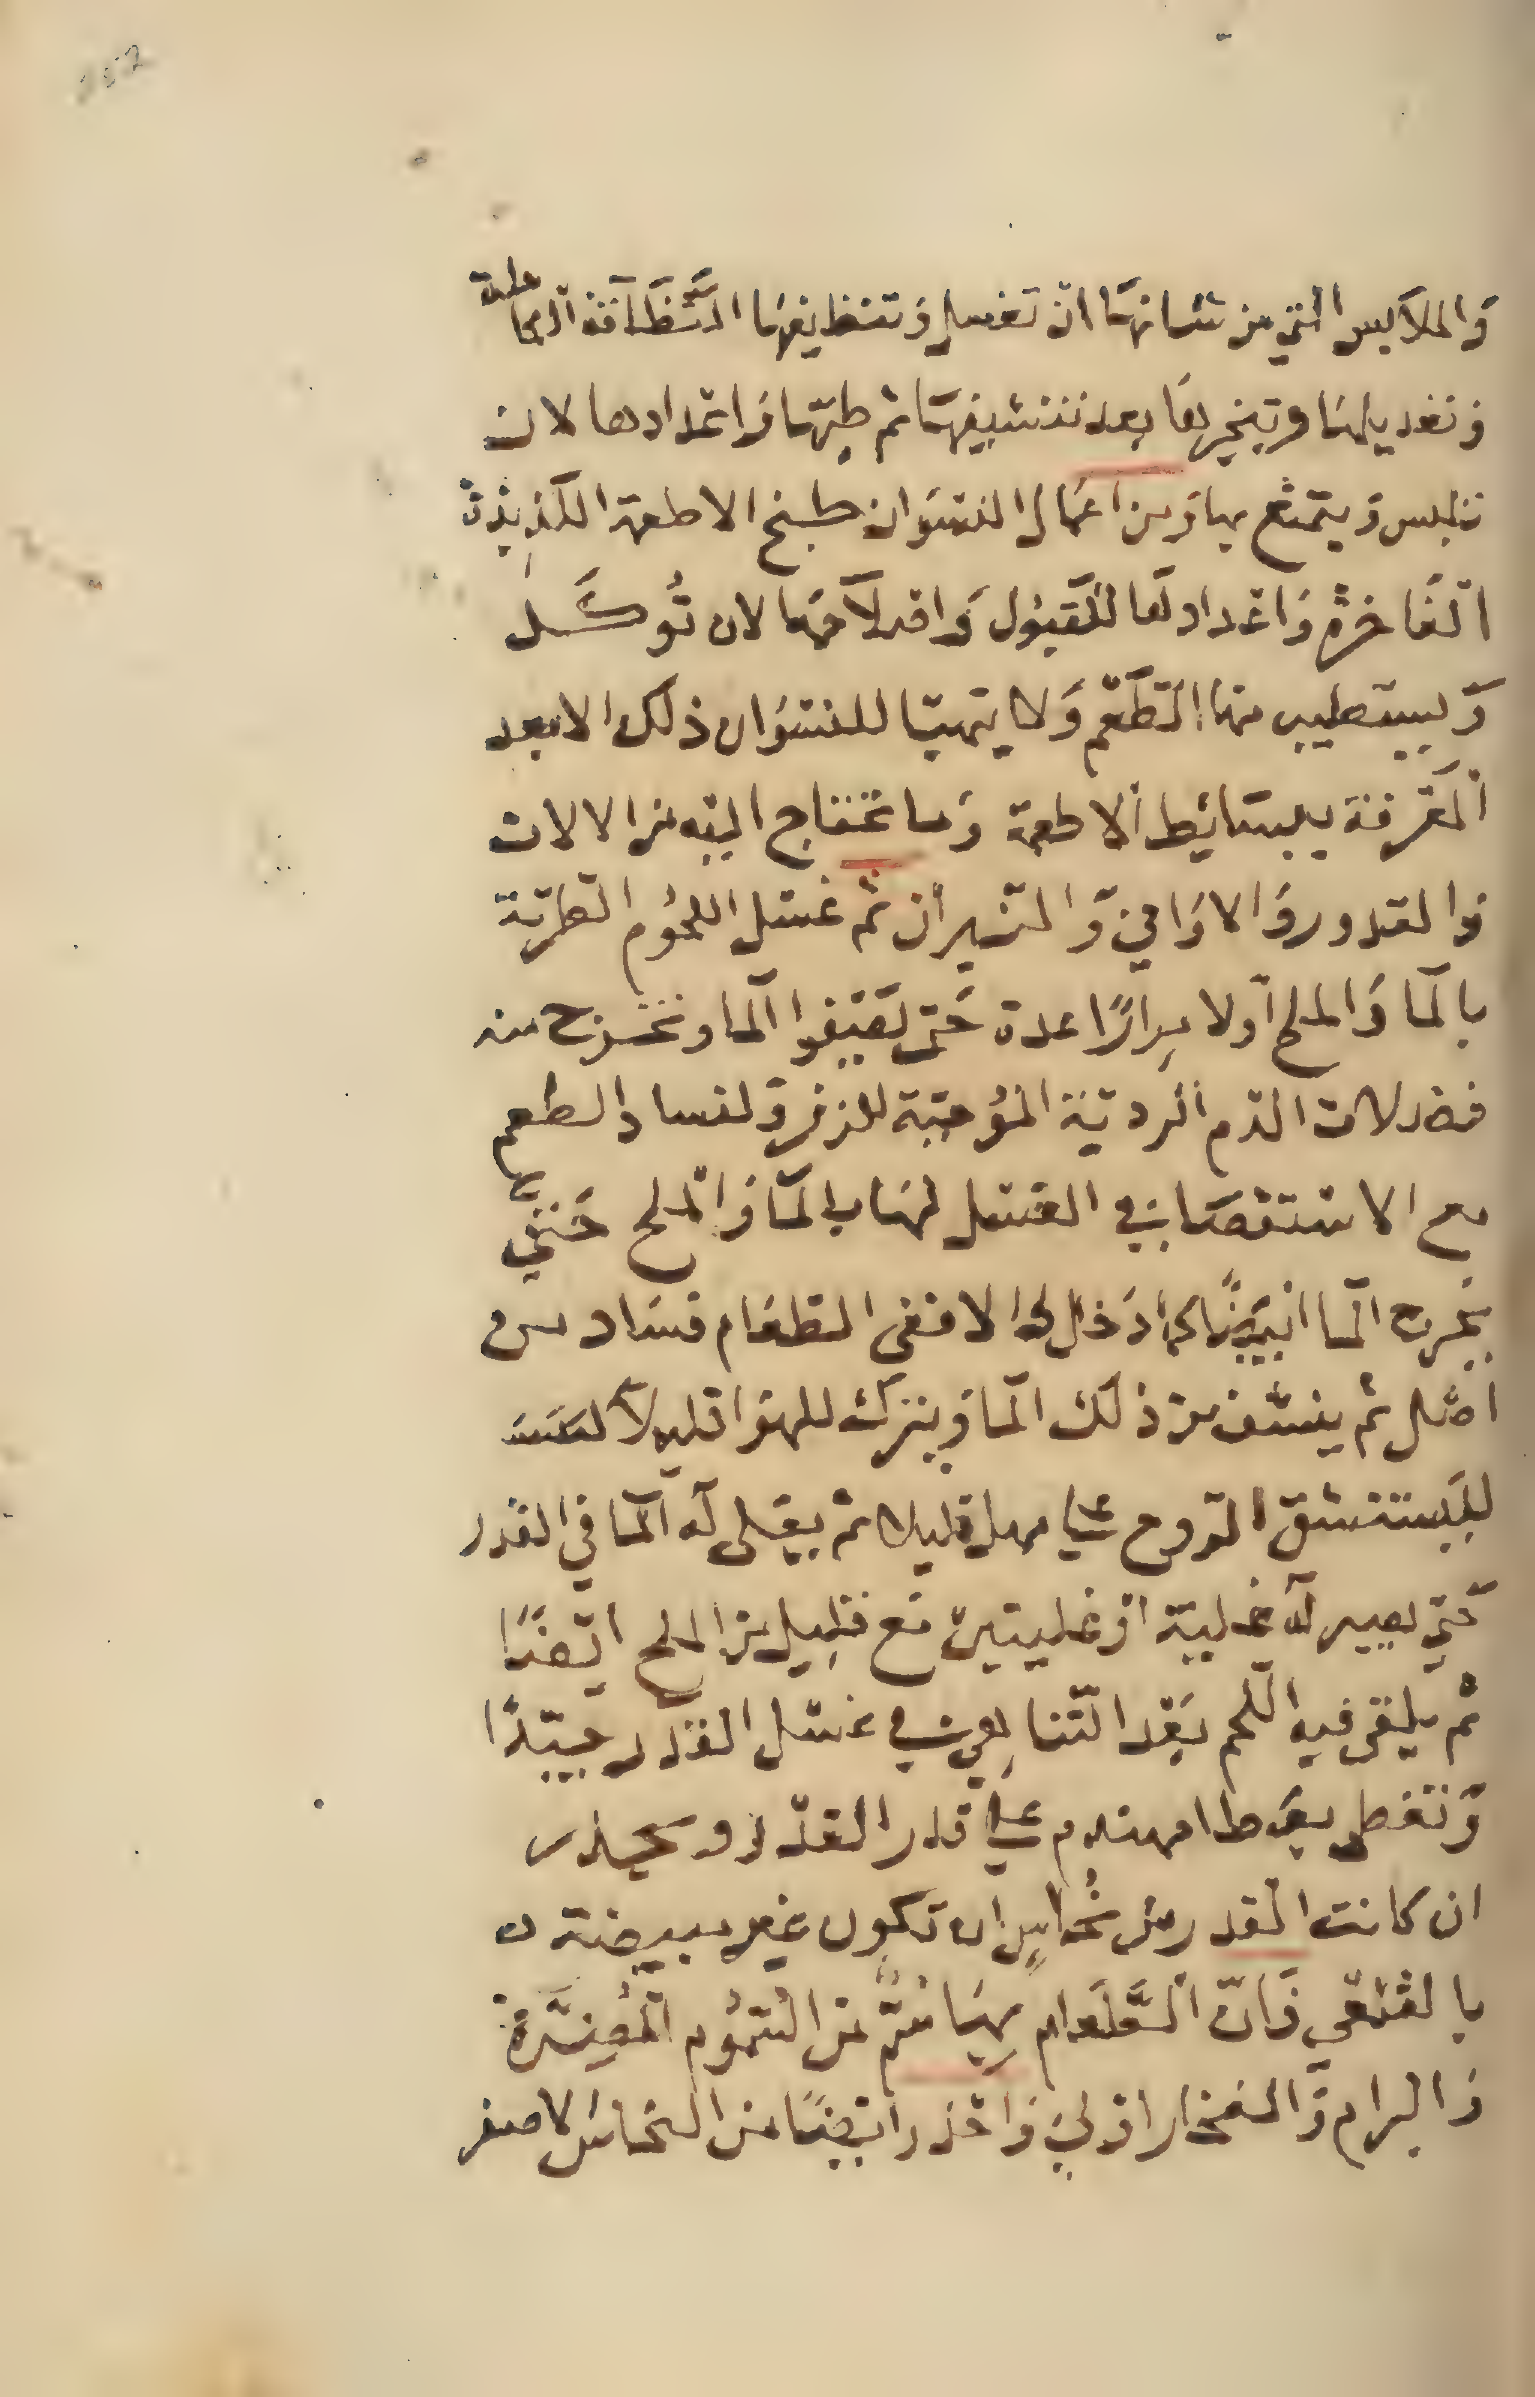 والملابس التي من شانها ان تغسل وتنظيفها النظافة الكاملة
وتعديلها وتبخيرها بعد تنشيفها ثم طيها واعدادها لان
تلبس ويتمتع بها ومن اعمال النسوان طبخ الاطعمة اللذيذة
الفاخرة واعدادها للقبول واصلاحها لان تُوكَل
ويستطيب منها الطعم ولا يتهيا للنسوان ذلك الا بعد
المعرفة ببسائط الاطعمة وما تحتاج اليه من الالات
والقدور والاواني والنيران ثم غسل اللحوم الطرية
بالما والملح اولا مرارًا عدة حتى يصفوا الما وتخرج منه
فضلات الدم الردية الموجبة للزفر ولفساد الطعم
مع الاستقصا في الغسل لها بالما والملح حتي
يخرج الما ابيضًا كما دخل والا ففي الطعام فساد من
اصل ثم ينشف من ذلك الما ويترك للهوا قليلا
ليستنشق الروح علي مهل قليلا ثم يغلى له الما في القدر
حتي يصير له غلية او غليتين مع قليل من الملح ايضًا
ثم يلقى فيه اللحم بعد التناهي في غسل القدر جيدًا
وتغطي بغطا مهندم علي قدر القدر و يحذر
ان كانت القدر من نحاسٍ ان تكون غير مبيضة
بالقلعي فان الطعام بها سمٌّ من السموم المضرة
والبرام والفخار اولي واحذر ايضًا من النحاس الاصفر